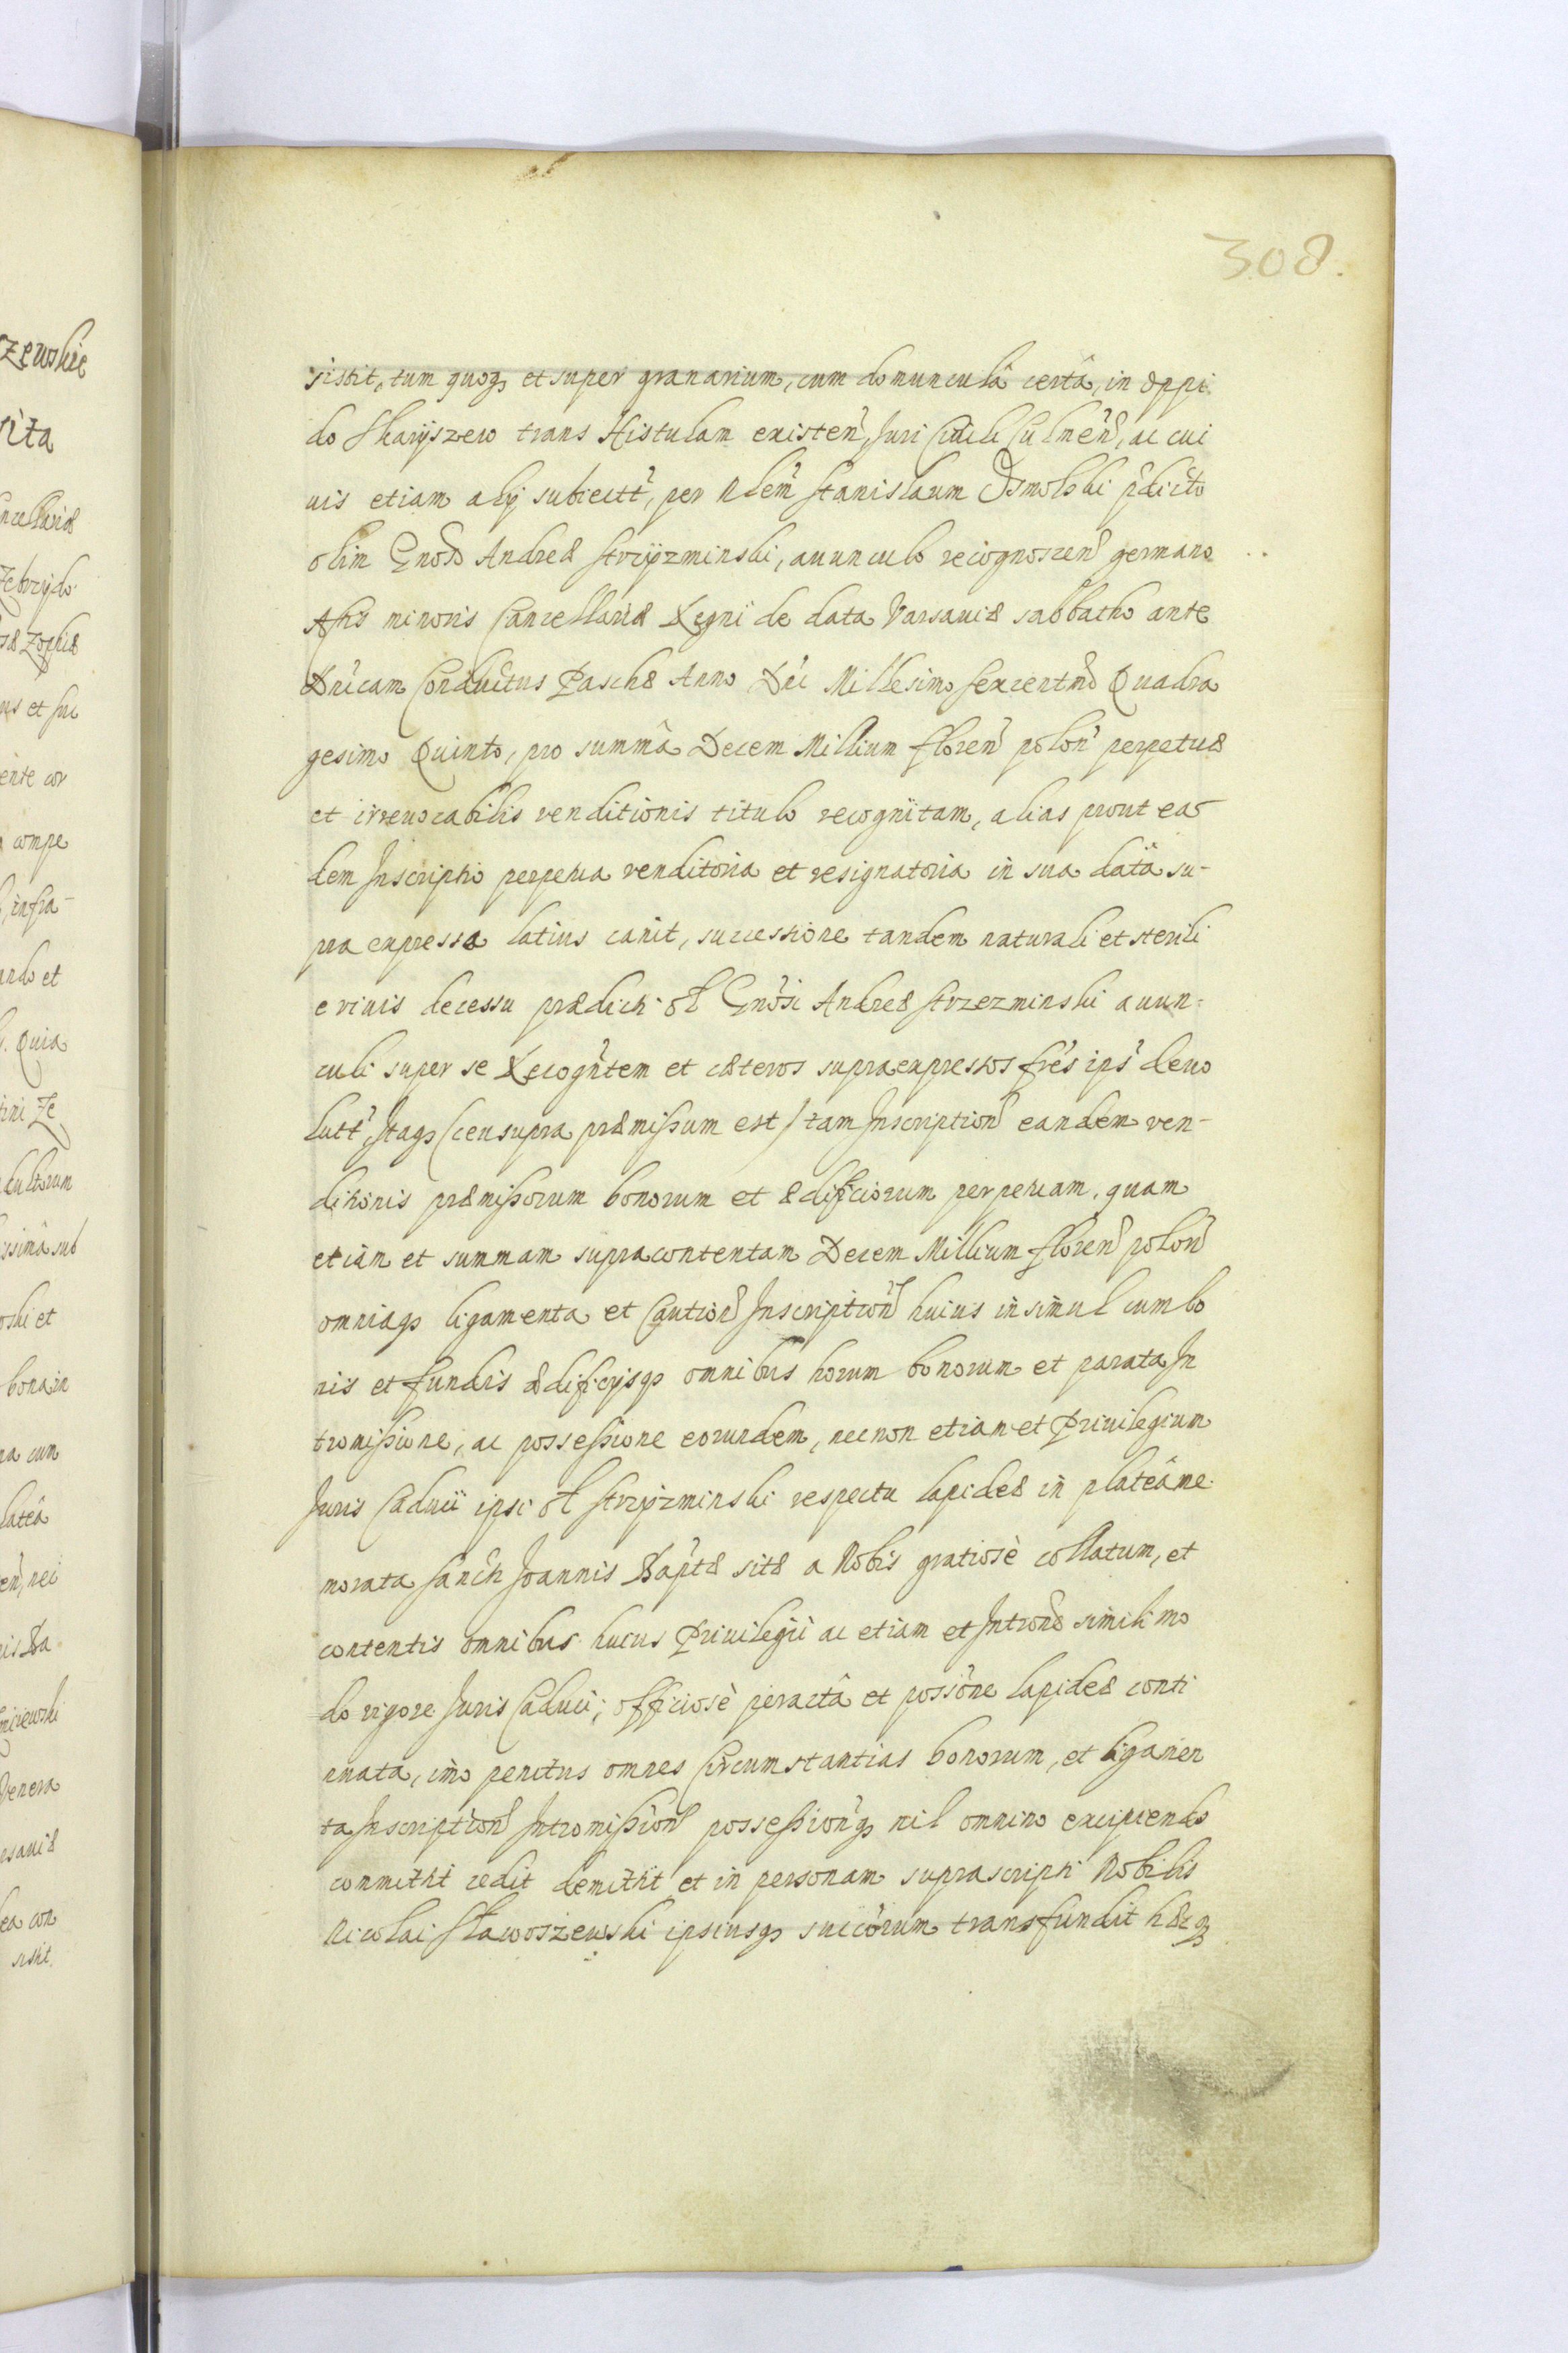 308.
sistit, tum quoq3 et super granarium, cum domunculâ certâ, in oppi
do Skaryszew trans Vistulam existen̄, Juri Civili Culmen̄, ac cui
uis etiam alij subiectt̄, per Nłem̄ Stanislaum Osmolski p̄dicto
olim Gnoso Andreæ Strzyżminski, auunculo recognoscen̄ germano
Actis minoris Cancellariæ Regni de data Varsaviæ sabbatho ante
Dn̄icam Conductus Paschæ Anno Dn̄i Millesimo sexcentmo Quadra
gesimo Quinto, pro summâ Decem Millium floren̄ polon̄ perpetuæ
et irreuocabilis venditionis titulo recognitam, alias prout ea
dem Inscriptio perpetua venditoria et resignatoria in sua datâ su-
pra expressa latius canit, successione tandem naturali et sterili
e viuis decessu prædicti ol Gn̄osi Andreæ Strzezminski auun-
culi super se Recogn̄tem et cæteros supraexpressos fr̄es ips̄ deuo
lutt̄ Itaq3 (ceu supra præmissum est) tam Inscription̄ eandem ven-
ditionis præmissorum bonorum et ædificiorum perpetuam, quam
etiam et summam supracontentam Decem Millium floren̄ polon̄
omniaq3 ligamenta et Caution̄ Inscription̄ huius insimul cum bo
nis et fundis ædificijsq3 omnibus horum bonorum et parata In
tromissione, ac possessione eorundem, necnon etiam et Priuilegium
Juris Caduci ipsi ol Strzyżminski respectu lapideæ in plateâ me
morata Sancti Joannis Bapt̄æ sitæ a Nobis gratiosè collatum, et
contentis omnibus huius Priuilegii ac etiam et Introne simili mo
do vigore Juris Caduci, officiosè peractâ et poss̄one lapideæ conti
nuata, imo penitus omnes Circumstantias bonorum, et ligamen
ta Inscription̄ Intromission̄ possession̄q3 nil omnino excipiendo
committit cedit demittit et in personam suprascripti Nobilis
Nicolai Sławoszewski ipsiusq3 succ̄orum transfundit hæcq3